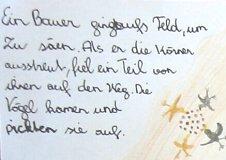 Ein Bauer ging aufs Feld, um
zu säen. Als er die Körner
ausstreut, fiel ein Teil von
ihnen auf den Weg. Die
Vögel kamen und
pickten sie auf.